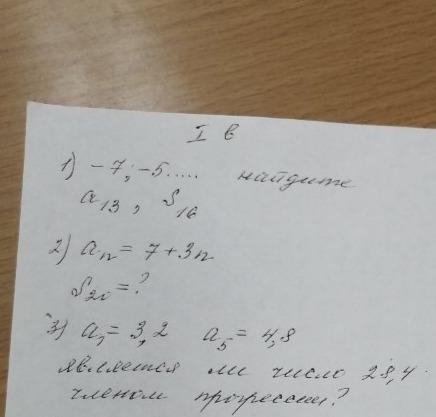 I в
1) -7; -5..... найдите
a₁₃, S₁₆
2) aₙ = 7 + 3n
S₂₀ = ?
3) a₁ = 3,2 a₅ = 4,8
является ли число 28,4
членом прогрессии?